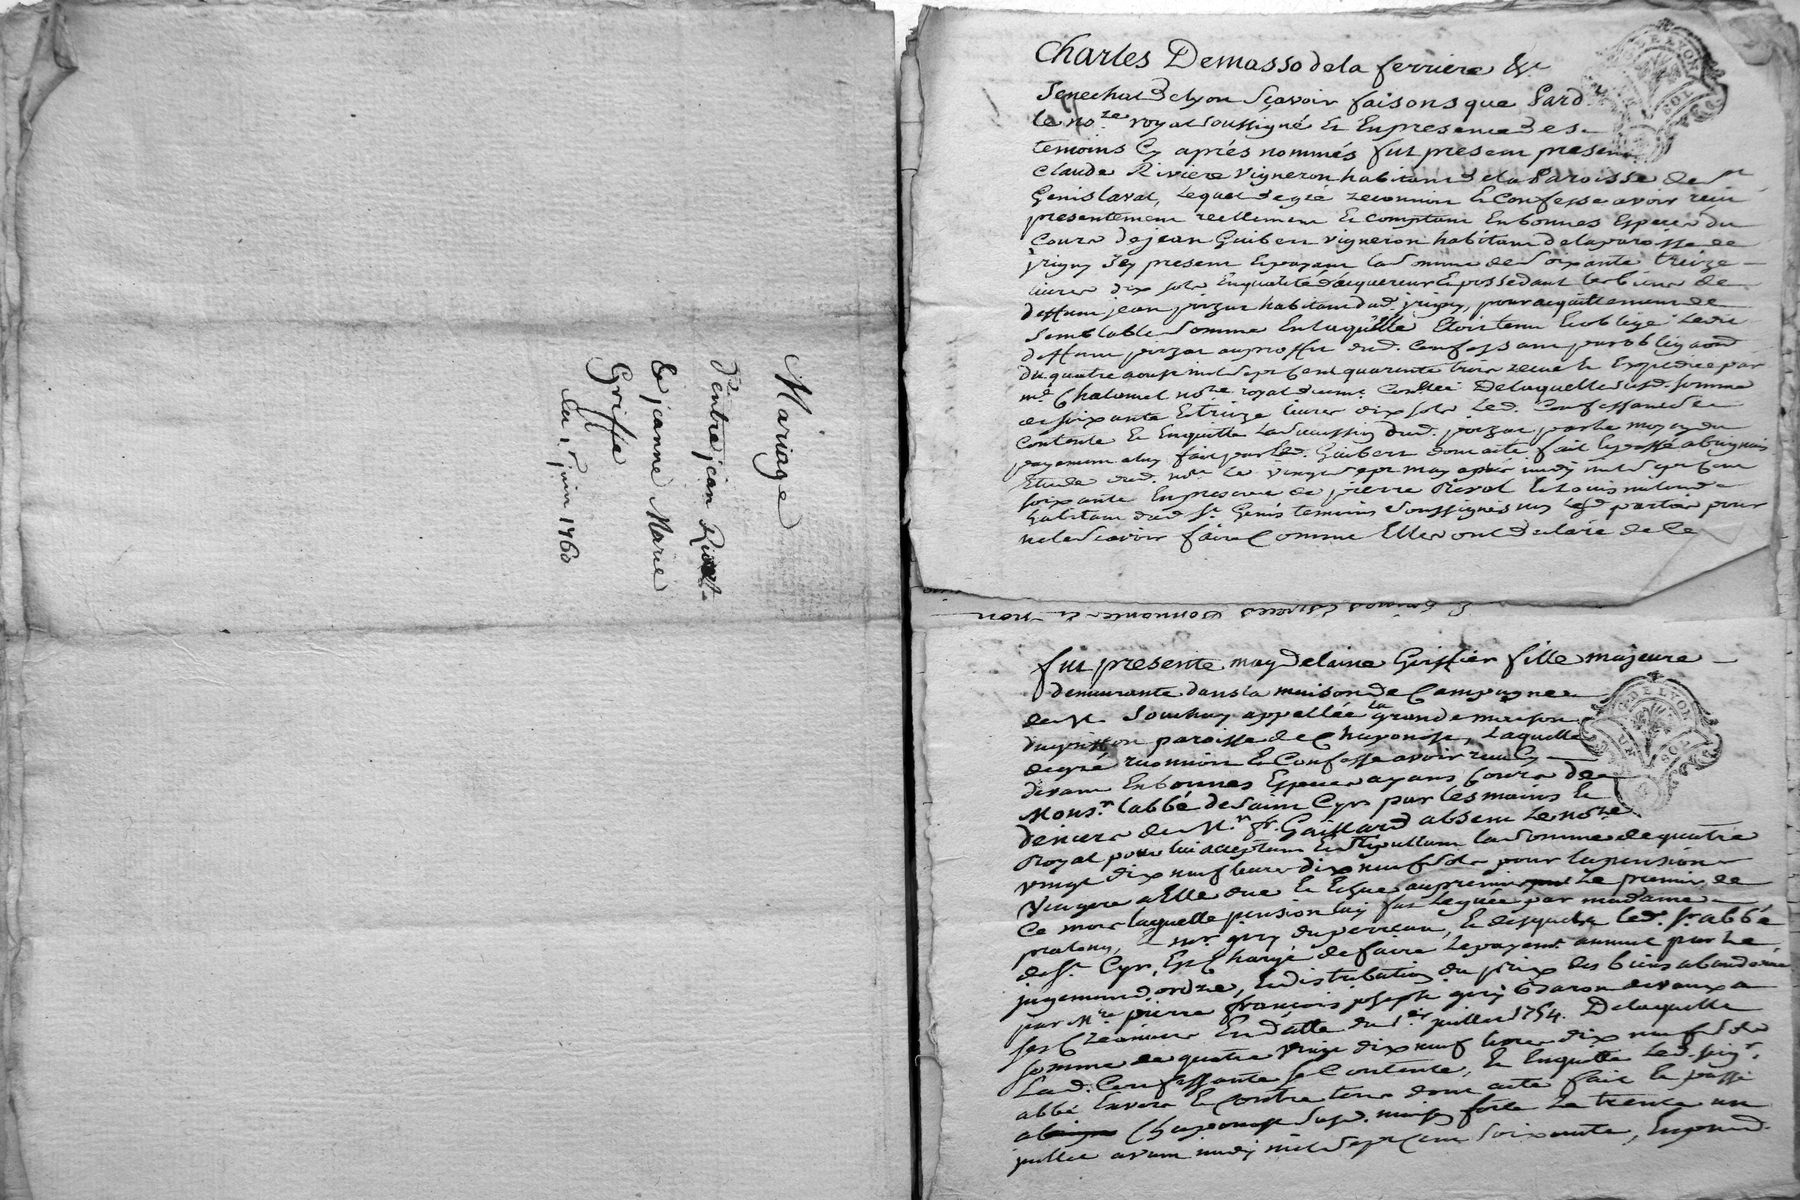 Mariage
d'entre jean Rivat
& jeanne Marie
Griffie
du 1er juin 1760
Charles Demasso de la ferriere &c
Senechal de lyon Sçavoir faisons que Pard
le nore royal soussigné et En presence des
temoins Cy aprés nommés fut present present
Claude Riviere Vigneron habitant de la Paroisse de St
Genislaval, Lequel de gré reconnu et Confesse avoir recu
presentement reellement et comptant En bonnes Especes du
Cours de jean Guibert vigneron habitant de la paroisse de
jrigny Icy present et payant la Somme de Soixante treize
livres dix sols En qualité d'acquereur et possedant les biens de
deffunt jean habitant dud jrigny, pour acquittement de
Semblable Somme En laquelle Etoit tenu et oblige Ledit
deffunt au proffit dud. Confessant par obligaon
du quatre aoust mil Sept Cent quarante trois receue et Expediée par
me Chalomel nore royal De laquelle susd. somme
de soixante et treize livres dix sols Led. Confessant se
Contente et En quitte La Succession dud. par le moyen du
payement a luy fait par led. Guibert dont acte fait et passé a brignais
Etude dud. nore le vingt sept may aprés midy mil sept Cent
soixante En presence de pierre Revol et Louis
habitant dud. St Genis temoins Soussignés non les parties pour
ne le Scavoir faire Comme Elles ont declaré de Ce
fut presente magdelaine Griffier fille majeure
demeurante dans la maison de Campagne
de Mr Souchay appellée la grande maison
paroisse de Chaponost, Laquelle
de gré reconnu et Confesse avoir recu Cy
devant En bonnes Especes ayans Cours de
Monsr l'abbé de Saint Cyr par les mains et
deniers de Mr fr. Gaillard absent Le nore
Royal pour lui acceptant et stipullant la Somme de quatre
vingt dix neuf livres dix neuf sols pour la pension
Viagere a Elle due et Echue au premier Le premier de
Ce mois laquelle pension luy fut Leguée par madame
de la quelle led. Sr abbé
de St Cyr, Est Chargé de faire Le payemt annuel par Le
jugement d'ordre, et distribution du prix des biens abandonnés
par Mre pierre françois joseph Baron devaux a
ses Créanciers En datte du 1er juillet 1754. De laquelle
somme de quatre vingt dix neuf livres dix neuf sols
La d. Confessante se Contente, et En quitte Led. seigr
abbé Envers et Contre tous dont acte fait et passé
a Chaponost susd. maison forte Le trente un
juillet avant midy mil Sept Cent Soixante, En presce